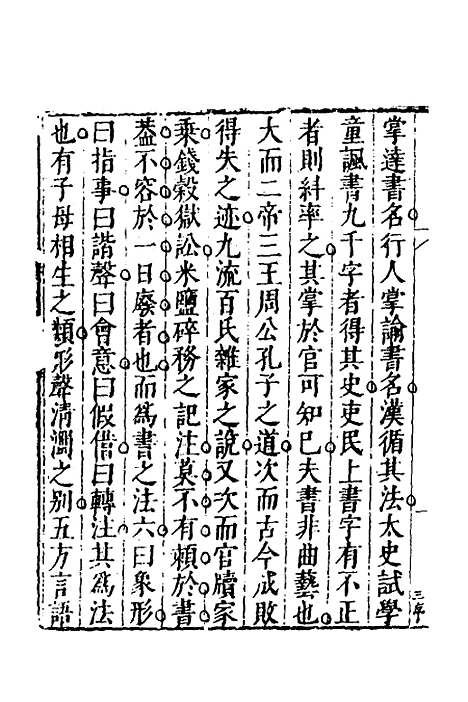 掌達書名行人掌諭書名漢循其法太史試學
童諷書九千字者得其史吏民上書字有不正
者則糾率之其掌於官可知已夫書非曲藝也
大而二帝三王周公孔子之道次而古今成敗
得失之迹九流百氏雜家之說又次而官牘家
乘錢穀獄訟米鹽碎務之記注莫不有頼於書
葢不容於一日廢者也而爲書之法六曰象形
曰指事曰諧聲曰會意曰假借曰轉注其爲法
也有子母相生之類形聲清濁之别五方言語